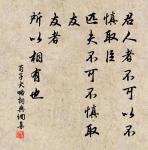 君人者不可以不
慎取臣
匹夫不可不慎取
友
友者
所以相有也
荀子大略詞典網集